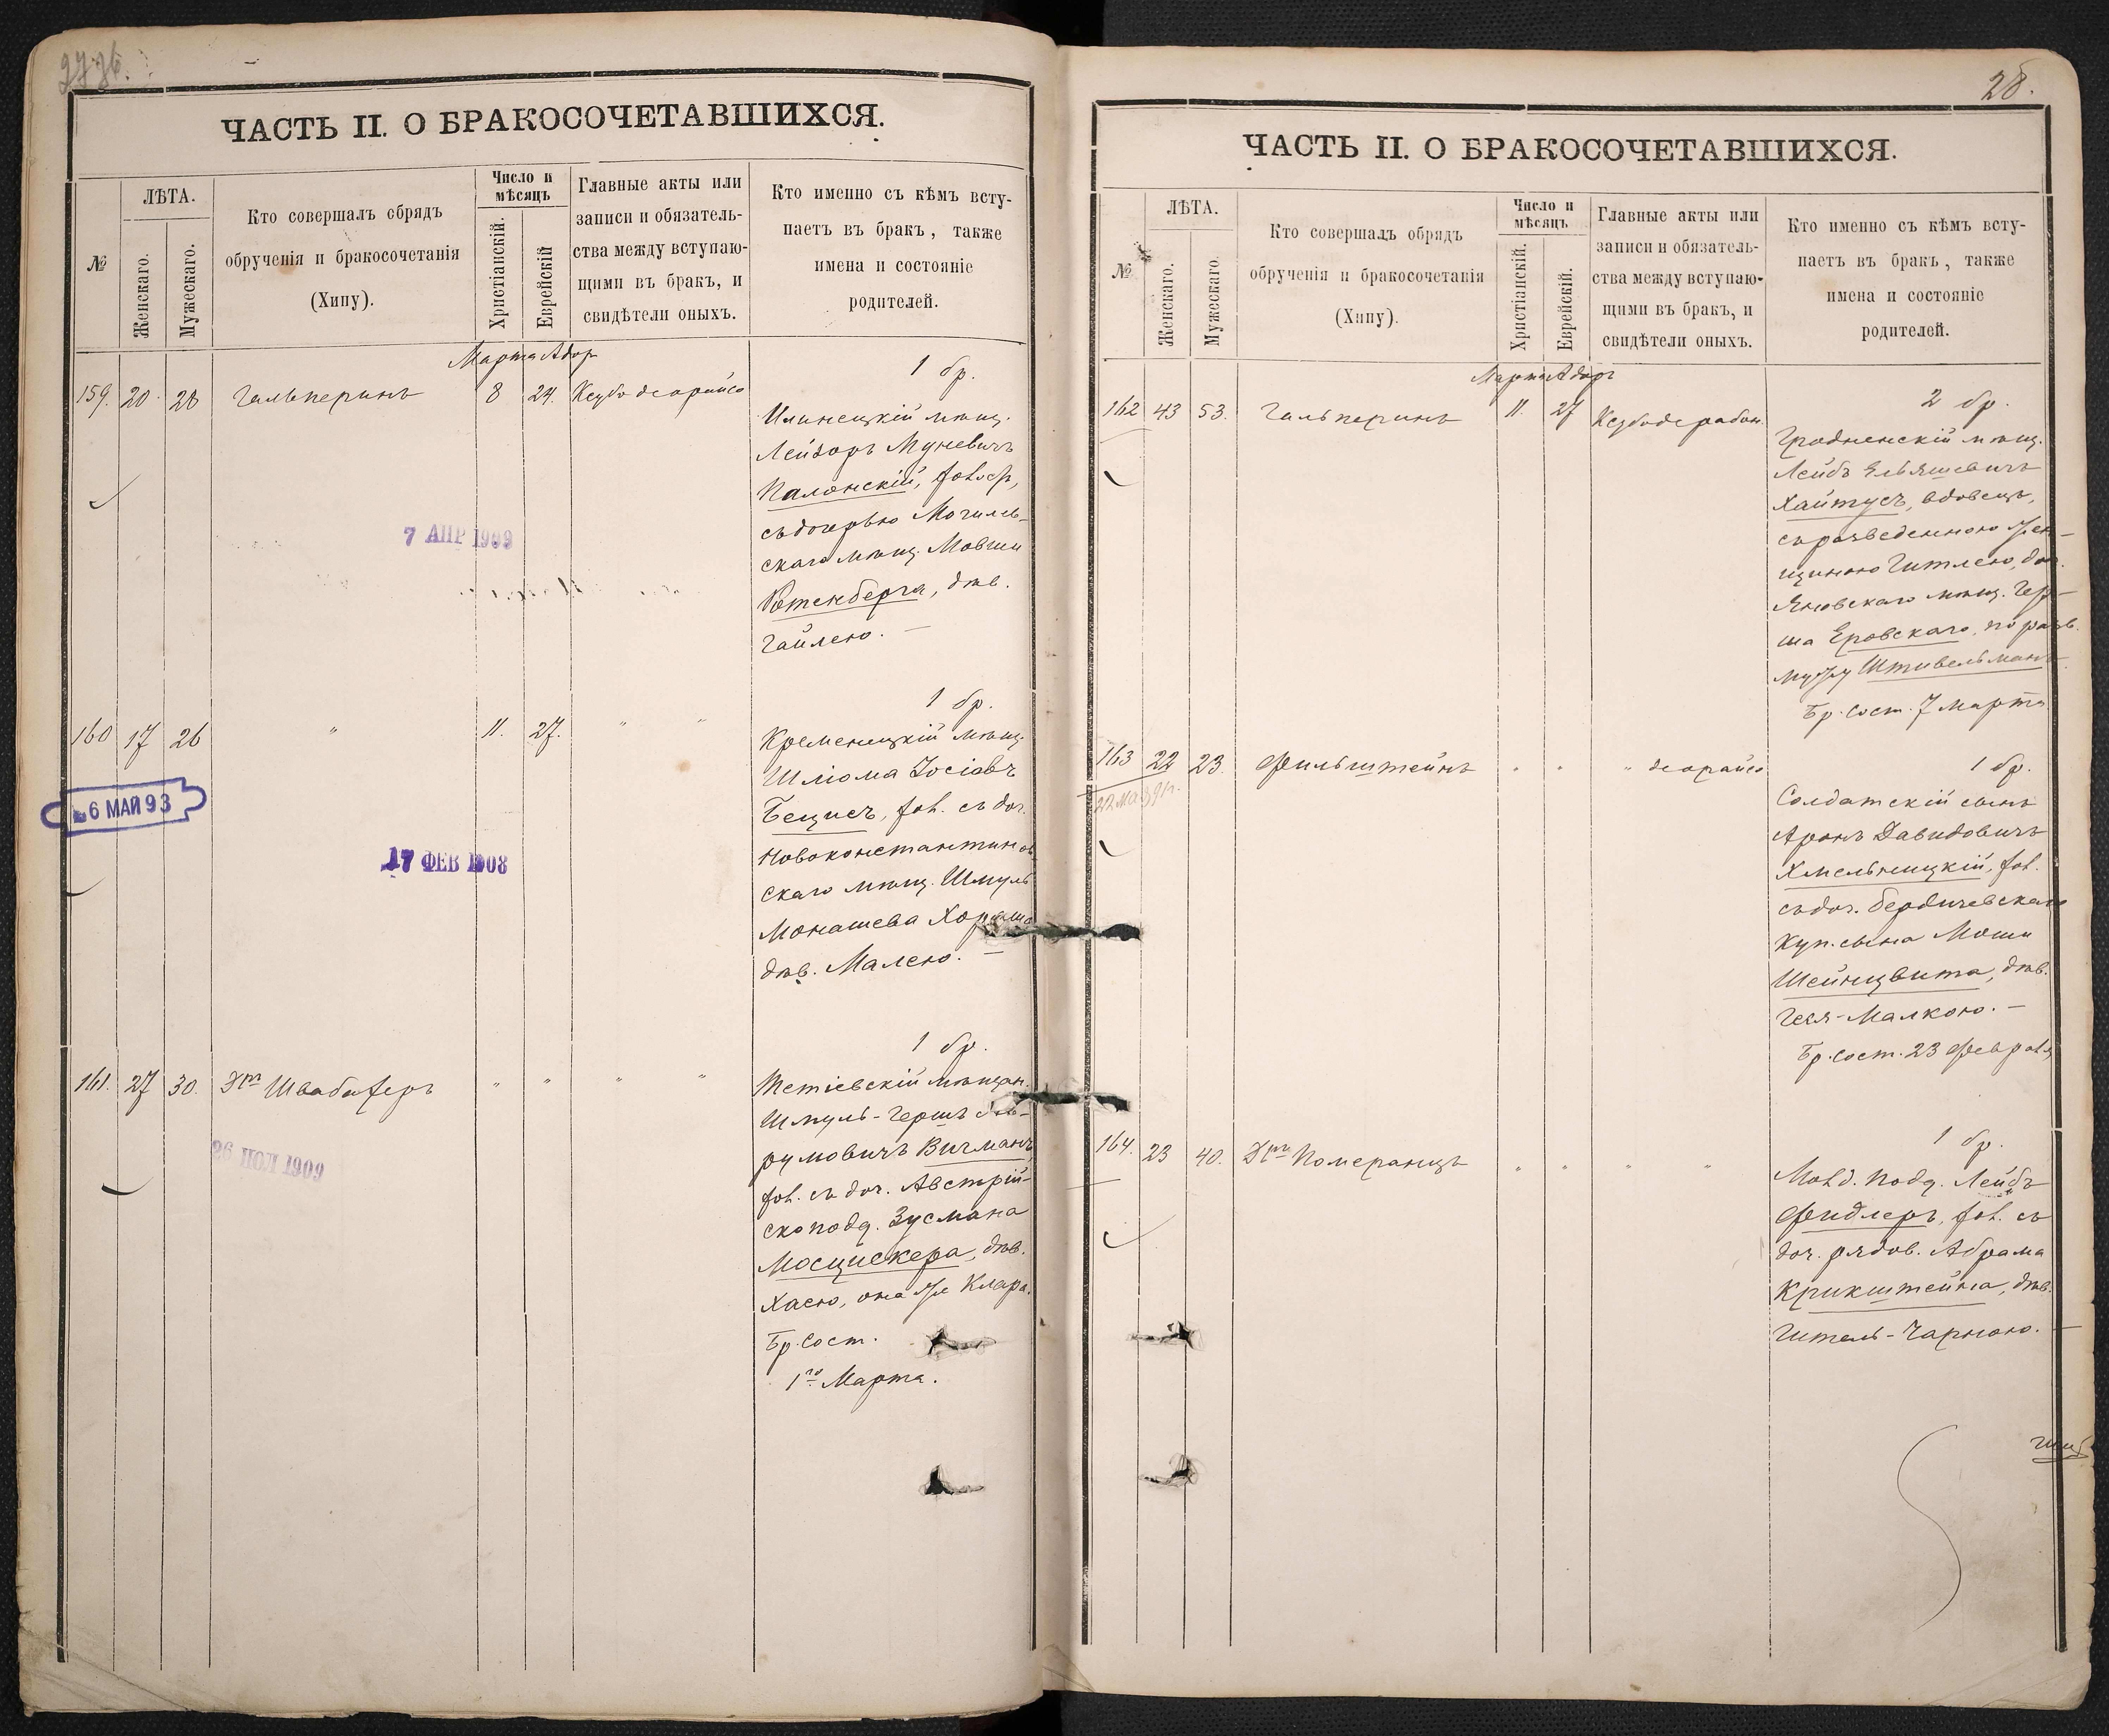 27 об.
ЧАСТЬ II. О БРАКОСОЧЕТАВШИХСЯ.
№
ЛѢТА.
Женскаго.
Мужескаго.
Кто совершалъ обрядъ
обрученія и бракосочетанія
(Хипу).
Число и
мѣсяцъ
Христіанскій.
Еврейскій
Главные акты или
записи и обязатель-
ства между вступаю-
щими въ бракъ, и
свидѣтели оныхъ.
Кто именно съ кѣмъ всту-
паетъ въ бракъ, также
имена и состояніе
родителей.
Марта Адор
159. 20. 28 Гальперинъ 8 24. Ксубо деорайсо
1 бр.
Илинецкій мѣщ.
Лейзоръ Муневичъ
Палонскій, хол.
съ дочерью Могилев-
скаго мѣщ. Мовши
Ротенберга, дѣв.
Гайлею. —
7 АПР 1909
160 17 26 " 11. 27. " "
1 бр.
Кременецкій мѣщ.
Шліома Іосіовъ
Бецисъ, хол. съ доч.
Новоконстантинов-
скаго мѣщ. Шмуль
Монашева
дѣв. Малею. —
6 МАЙ 93
17 ФЕВ 1908
161. 27 30. Шваберъ " " " "
1 бр.
Тетіевскій мѣщан.
Шмуль-Гершъ
румовичъ Вигманъ,
хол. съ доч. Австрій-
ско подд. Зусмана
Мосцискера, дѣв.
Хаею, она же Клара.
Бр. сост.
1го Марта.
1909
28.
ЧАСТЬ II. О БРАКОСОЧЕТАВШИХСЯ.
№
ЛѢТА.
Женскаго.
Мужескаго.
Кто совершалъ обрядъ
обрученія и бракосочетанія
(Хипу).
Число и
мѣсяцъ
Христіанскій.
Еврейскій.
Главные акты или
записи и обязатель-
ства между вступаю-
щими въ бракъ, и
свидѣтели оныхъ.
Кто именно съ кѣмъ всту-
паетъ въ бракъ, также
имена и состояніе
родителей.
Марта Адоръ
162 43 53. Гальперинъ 11. 27 Ксубо дерабон.
2 бр.
Гродненскій мѣщ.
Лейбъ Ельяшевичъ
Хаймусъ, вдовецъ,
съ разведенною жен-
щиною Гитлею, доч.
Яновскаго мѣщ. Гер-
ша Еровскаго, по разв.
мужу Штивельманъ
Бр. сост. 7 Марта
163 22 23. Фильштейнъ " " " деорайсо
1 бр.
Солдатскій сынъ
Аронъ Давидовичъ
Хмельницкій, хол.
съ доч. Бердичевскаго
куп. сына Моши
Шейнцвита, дѣв.
Геся-Малкою. —
Бр. сост. 23 Февраля
164. 23 40. Померанцъ " " " "
1 бр.
Молд. подд. Лейбъ
Фидлеръ, хол. съ
доч. рядов. Абрама
Крикштейна, дѣв.
Гитель-Чарною. —